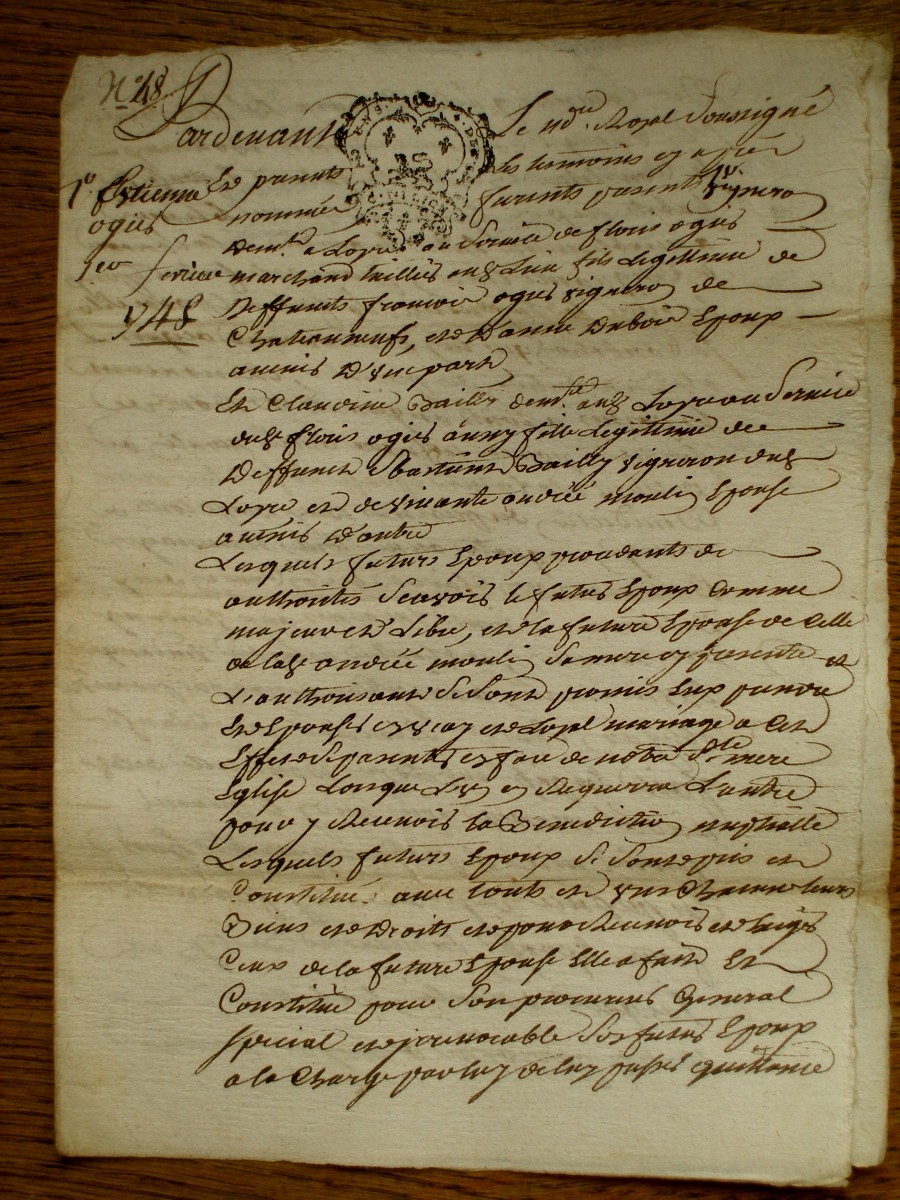 N° 48
Pardevant Le no.re Royal Soussigné
Et presents Les temoins en apres
nommés furent presents vigneron
1°. Estienne
ogier
1er fevrier
1748
dem.t a Loyre au Service de floris ogier
marchand tailleur aud. Lieu fils Legittime de
deffunts francois ogier vigneron de
Chateauneuf, et d'anne dubois Epoux
avenir d'une part
Et Claudine Bailly dem.te aud. Loyre au Service
dud. floris ogier aussy fille Legittime de
deffunct Bailly vigneron dud.
Loyre et de vivante andrée moulin Epouse
avenir d'autre
Lesquels futurs Epoux procedants de
authorités Scavoir le futur Epoux Comme
majeur et Libre, et la future Epouse de Celle
de lad. andrée moulin Sa mere icy presente et
L'authorisante Se Sont promis Eux prendre
et Epouser en vray et Loyal mariage a Cet
Effet Se presenter en face de notre S.te mere
Eglise Lorsque L'un en Requerra L'autre
pour y Recevoir la Benediction nuptialle
Lesquels futurs Epoux Se Sont pris et
Constitué avec touts et un Chacun leurs
Biens et Droits et pour Recevoir et Exiger
Ceux de la future Epouse Elle a fait Et
Constitué pour Son procureur General
special et irrevocable Led. futur Epoux
a la Charge par luy de luy passer quittance